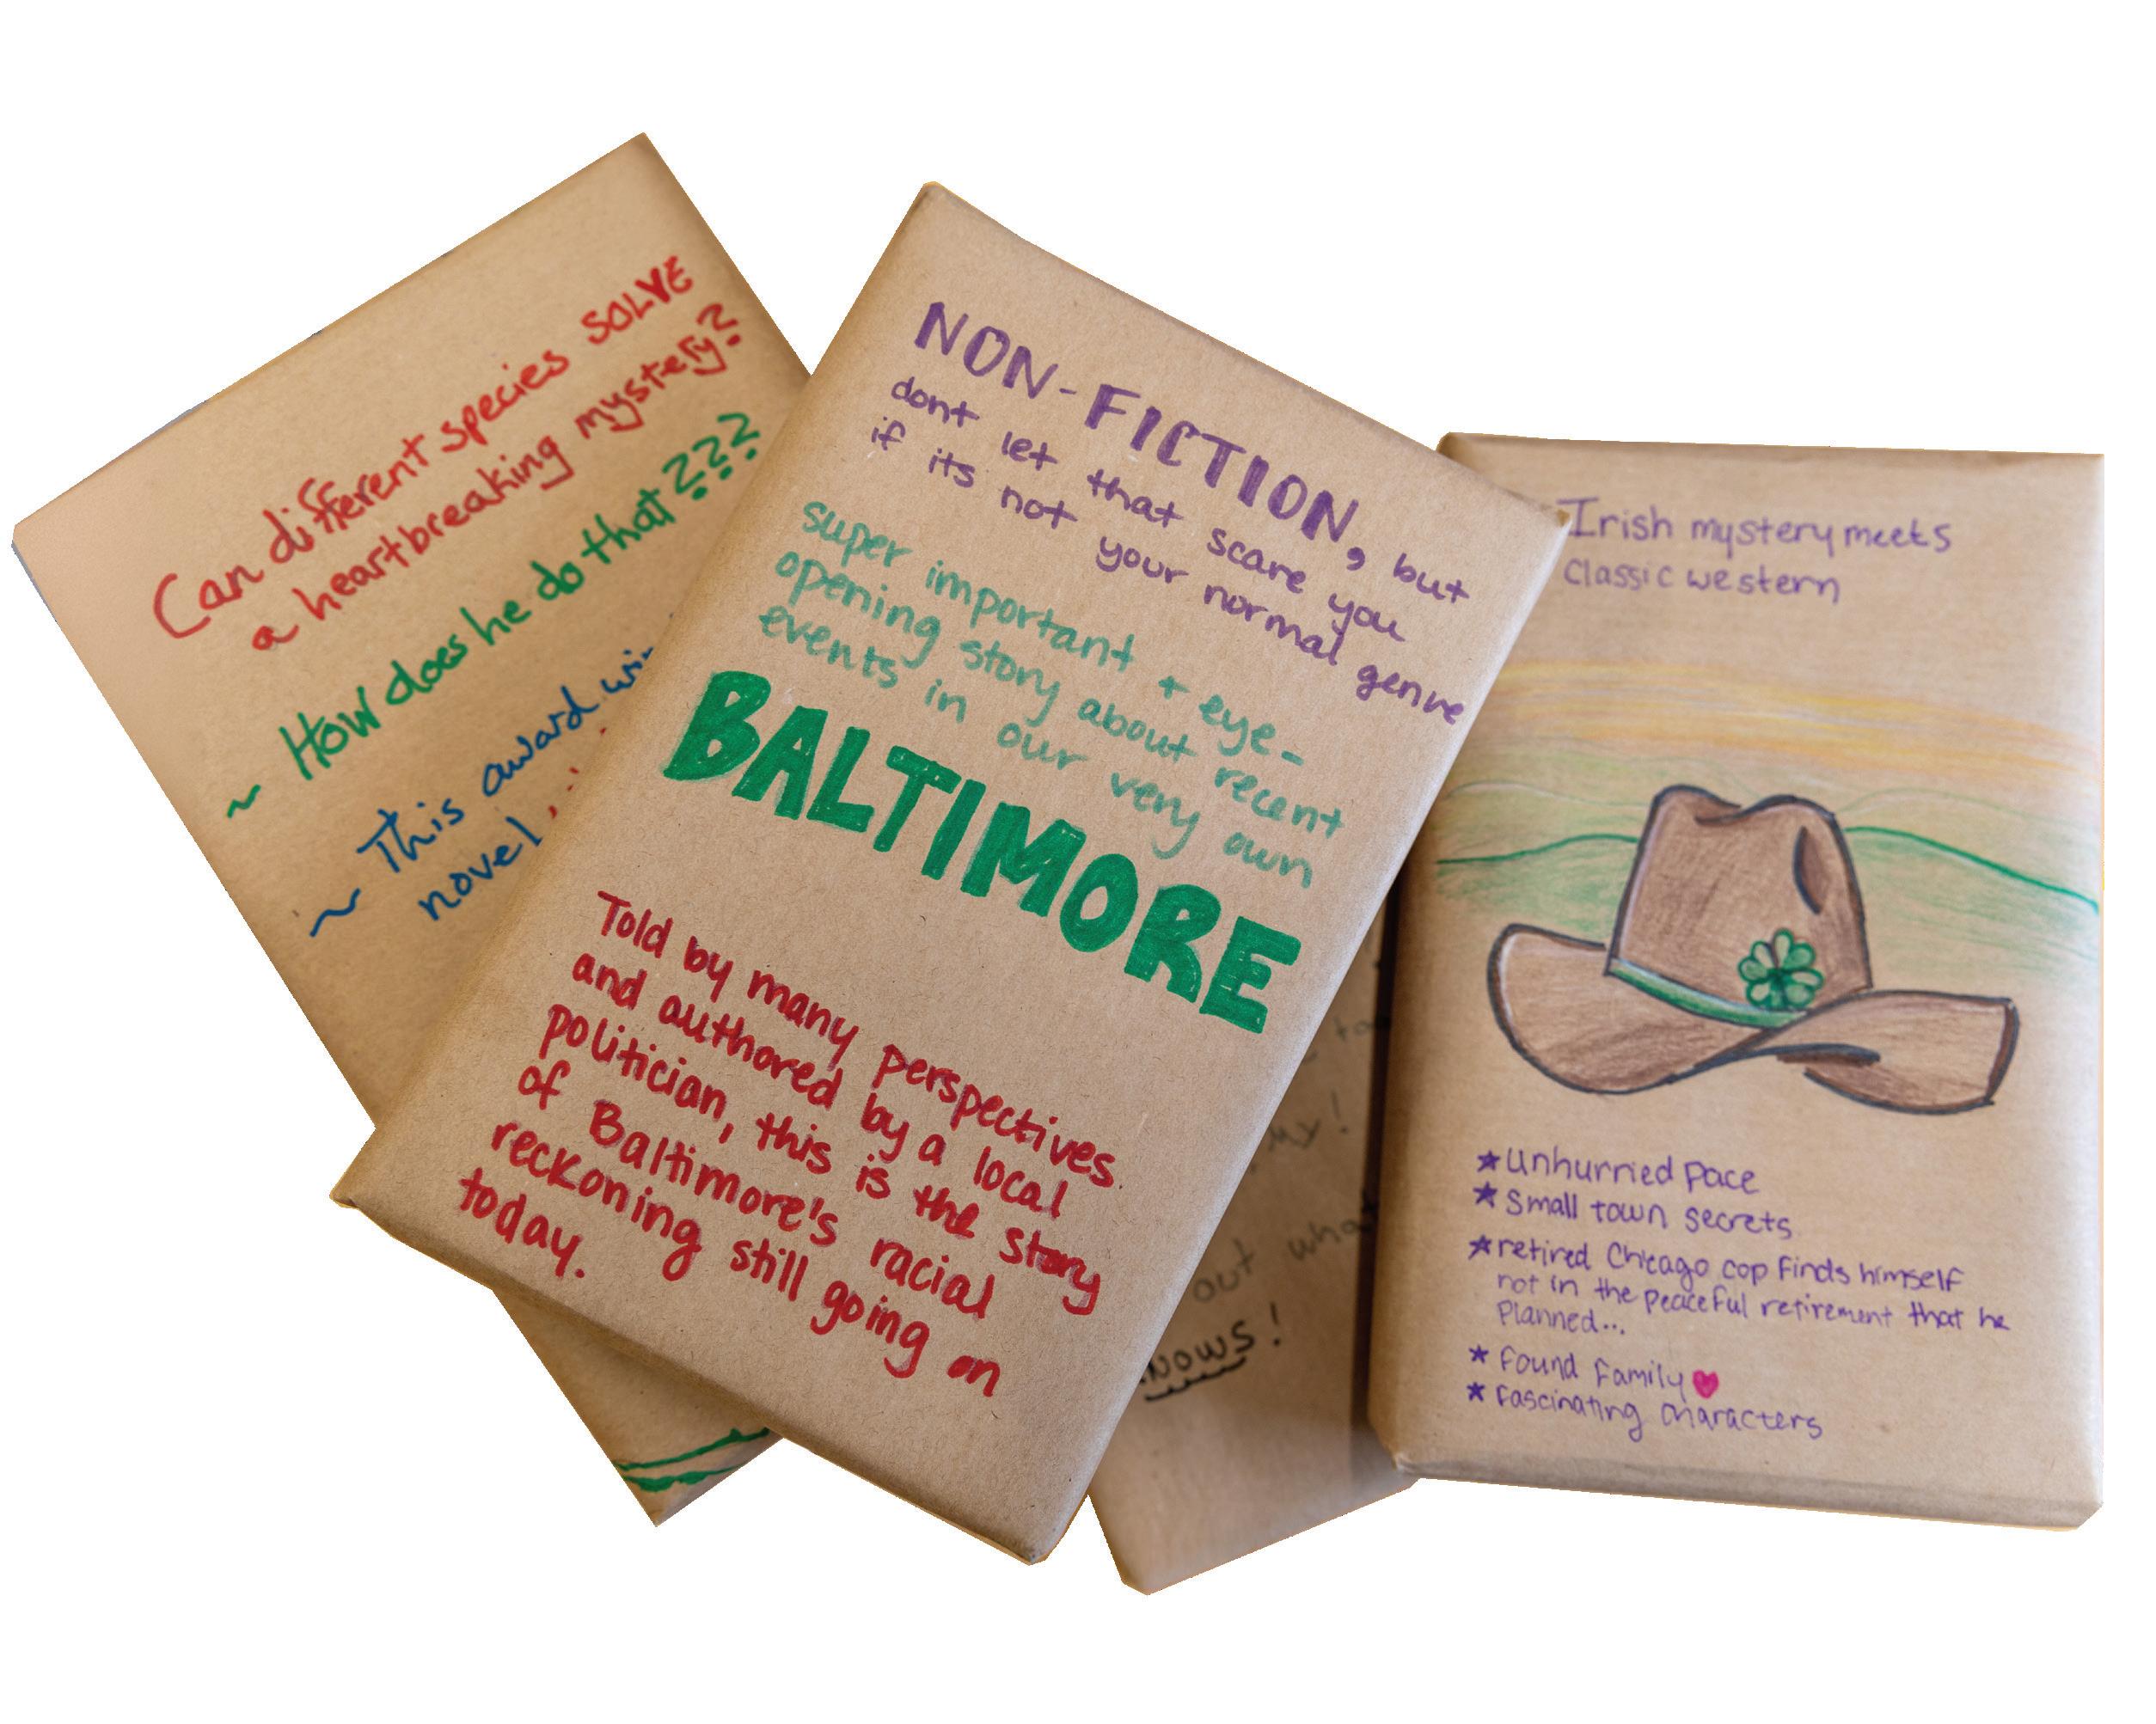 Can different species SOLVE
a heartbreaking mystery?
~ How does he do that???
~ This award
novel
NON-FICTION, but
dont let that scare you
if its not your normal genre
super important + eye-
opening story about recent
events in our very own
BALTIMORE
Told by many perspectives
and authored by a local
politician, this is the story
of Baltimore's racial
reckoning still going on
today.
out
Irish mystery meets
Classic western
★ Unhurried pace
★ Small town secrets
★ retired Chicago cop finds himself
not in the peaceful retirement that he
planned...
★ found family ♥
★ fascinating characters